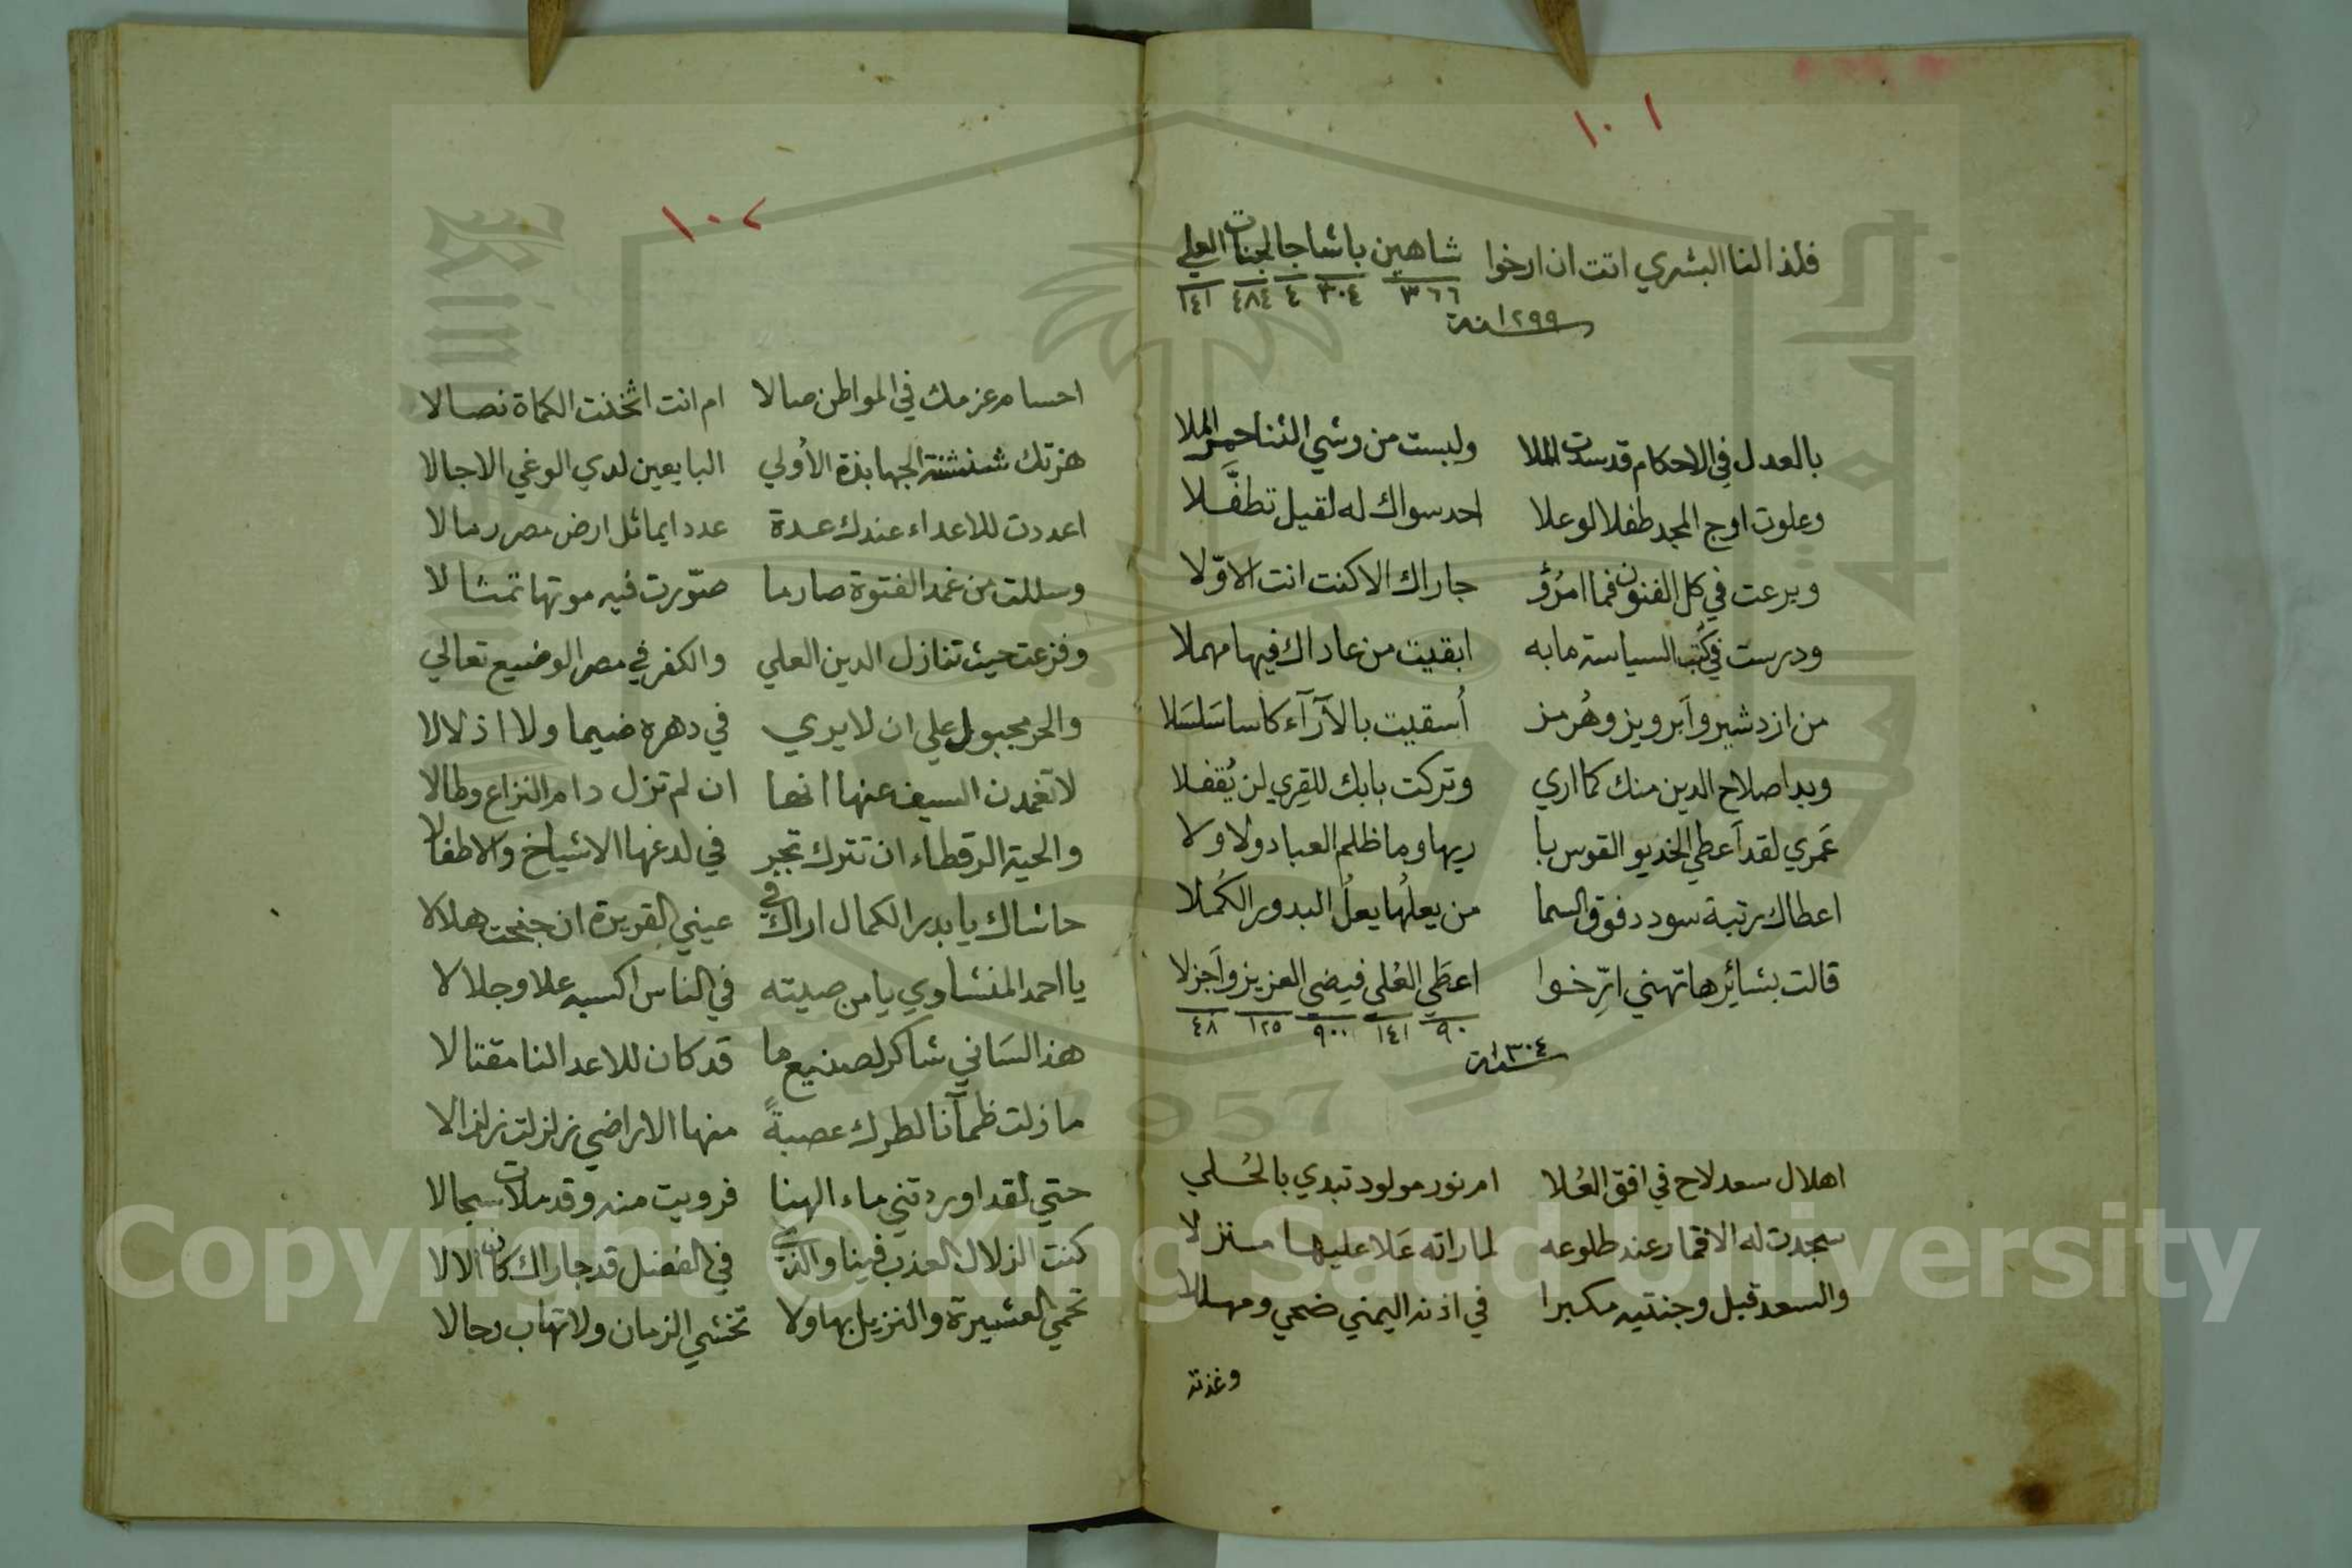 ١٠١
فلذا لنا البشري اتت ان ارخوا شاهين باشا جا لجنات العلي
٣٦٦ ٣٠٤ ٤ ٤٨٤ ١٤١
سنة ١٢٩٩
بالعدل في الاحكام قد سدت الملا ولبست من وشي الثنا حمر الملا
وعلوت اوج المجد طفلا لو علا احد سواك له لقيل تطفَّلا
وبرعت في كل الفنون فما امرُؤ جاراك الا كنت انت الاوّلا
ودرست في كُتب السياسة ما به ابقيت من عاداك فيها مهملا
من ازدشير وآبرويز وهُرمز أُسقيت بالآرآء كاسا سَلسَلا
وبدا صلاح الدين منك كما اري وتركت بابك للقِري لن يُقفلا
عَمري لقد آعطي الخديو القوس با ريها وما ظلم العباد ولا ولا
اعطاك رتبة سودد فوق السما من يعلُها يعلُ البدور الكُملا
قالت بشائرها تهني ارّخوا اعطَي العُلي فيضي العزيز وآجزلا
٩٠ ١٤١ ٩٠٠ ١٢٥ ٤٨
سنة ١٣٠٤
اهلال سعد لاح في افق العُلا ام نور مولود تبدي بالحُلي
سجدت له الاقمار عند طلوعه لما راته عَلا عليها منزلا
والسعد قبل وجنتيه مكبرا في اذنه اليمني ضحي ومهللا
وغذته
١٠٢
احسام عزمك في المواطن صالا ام انت اثخنت الكماة نصالا
هزتك شنشنة الجهابذة الأولي البايعين لدي الوغي الاجالا
اعددت للاعداء عندك عدة عددا يماثل ارض مصر رمالا
وسللت من غمد الفتوة صارما صوّرت فيه موتها تمثالا
وفزعت حيث تنازل الدين العلي والكفر في مصر الوضيع تعالي
والحر مجبول علي ان لا يري في دهره ضيما ولا اذلالا
لا تغمدن السيف عنها انها ان لم تزل دام النزاع وطالا
والحية الرقطاء ان تترك تجر في لدغها الاشياخ والاطفالا
حاشاك يا بدر الكمال اراك في عيني القويرة ان جنحت هلالا
يا احمد المنشاوي يا من صيته في الناس اكسبه علا وجلالا
هذا لساني شاكر لصنيع ما قد كان للاعدا لنا مقتالا
ما زلت ظمآنا لطرك عصبةً منها الاراضي زلزلت زلزالا
حتي لقد اوردتني ماء الهنا فرويت منه وقد ملات سجالا
كنت الزلال العذب فينا والذي في الفضل قد جاراك كان الالا
تحمي العشيرة والنزيل بها ولا تخشي الزمان ولا تهاب رجالا